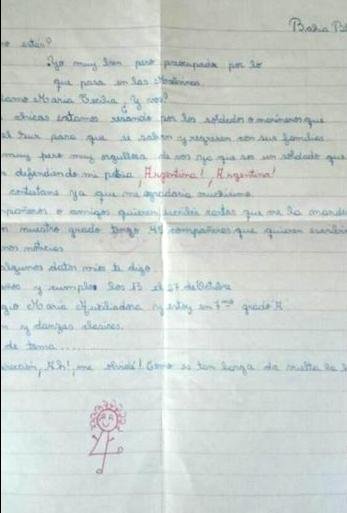 Bahia Bl
mo estás?
Yo muy bien pero preocupada por lo
que pasa en las Malvinas.
lamo Maria Cecilia ¿Y vos?
chicas estamos rezando por los soldados o marineros que
el Sur para que se salven y regresen con sus familias.
muy pero muy orgullosa de vos ya que sos un soldado que
defendiendo mi patria Argentina!, Argentina!
contestame ya que me agradaria muchisimo
mpañeros o amigos quieren escribir cartas que me la manden
n nuestro grado tengo 42 compañeras que quieren escribir
nos noticias
algunos datos mios te digo
años y cumplo los 13 el 27 de Octubre
gio Maria Auxiliadora y estoy en 7mo grado A
n y danzas clasicas.
de tema.....
irección, Ah!, me olvidé! Como es tan larga da vuelta la h